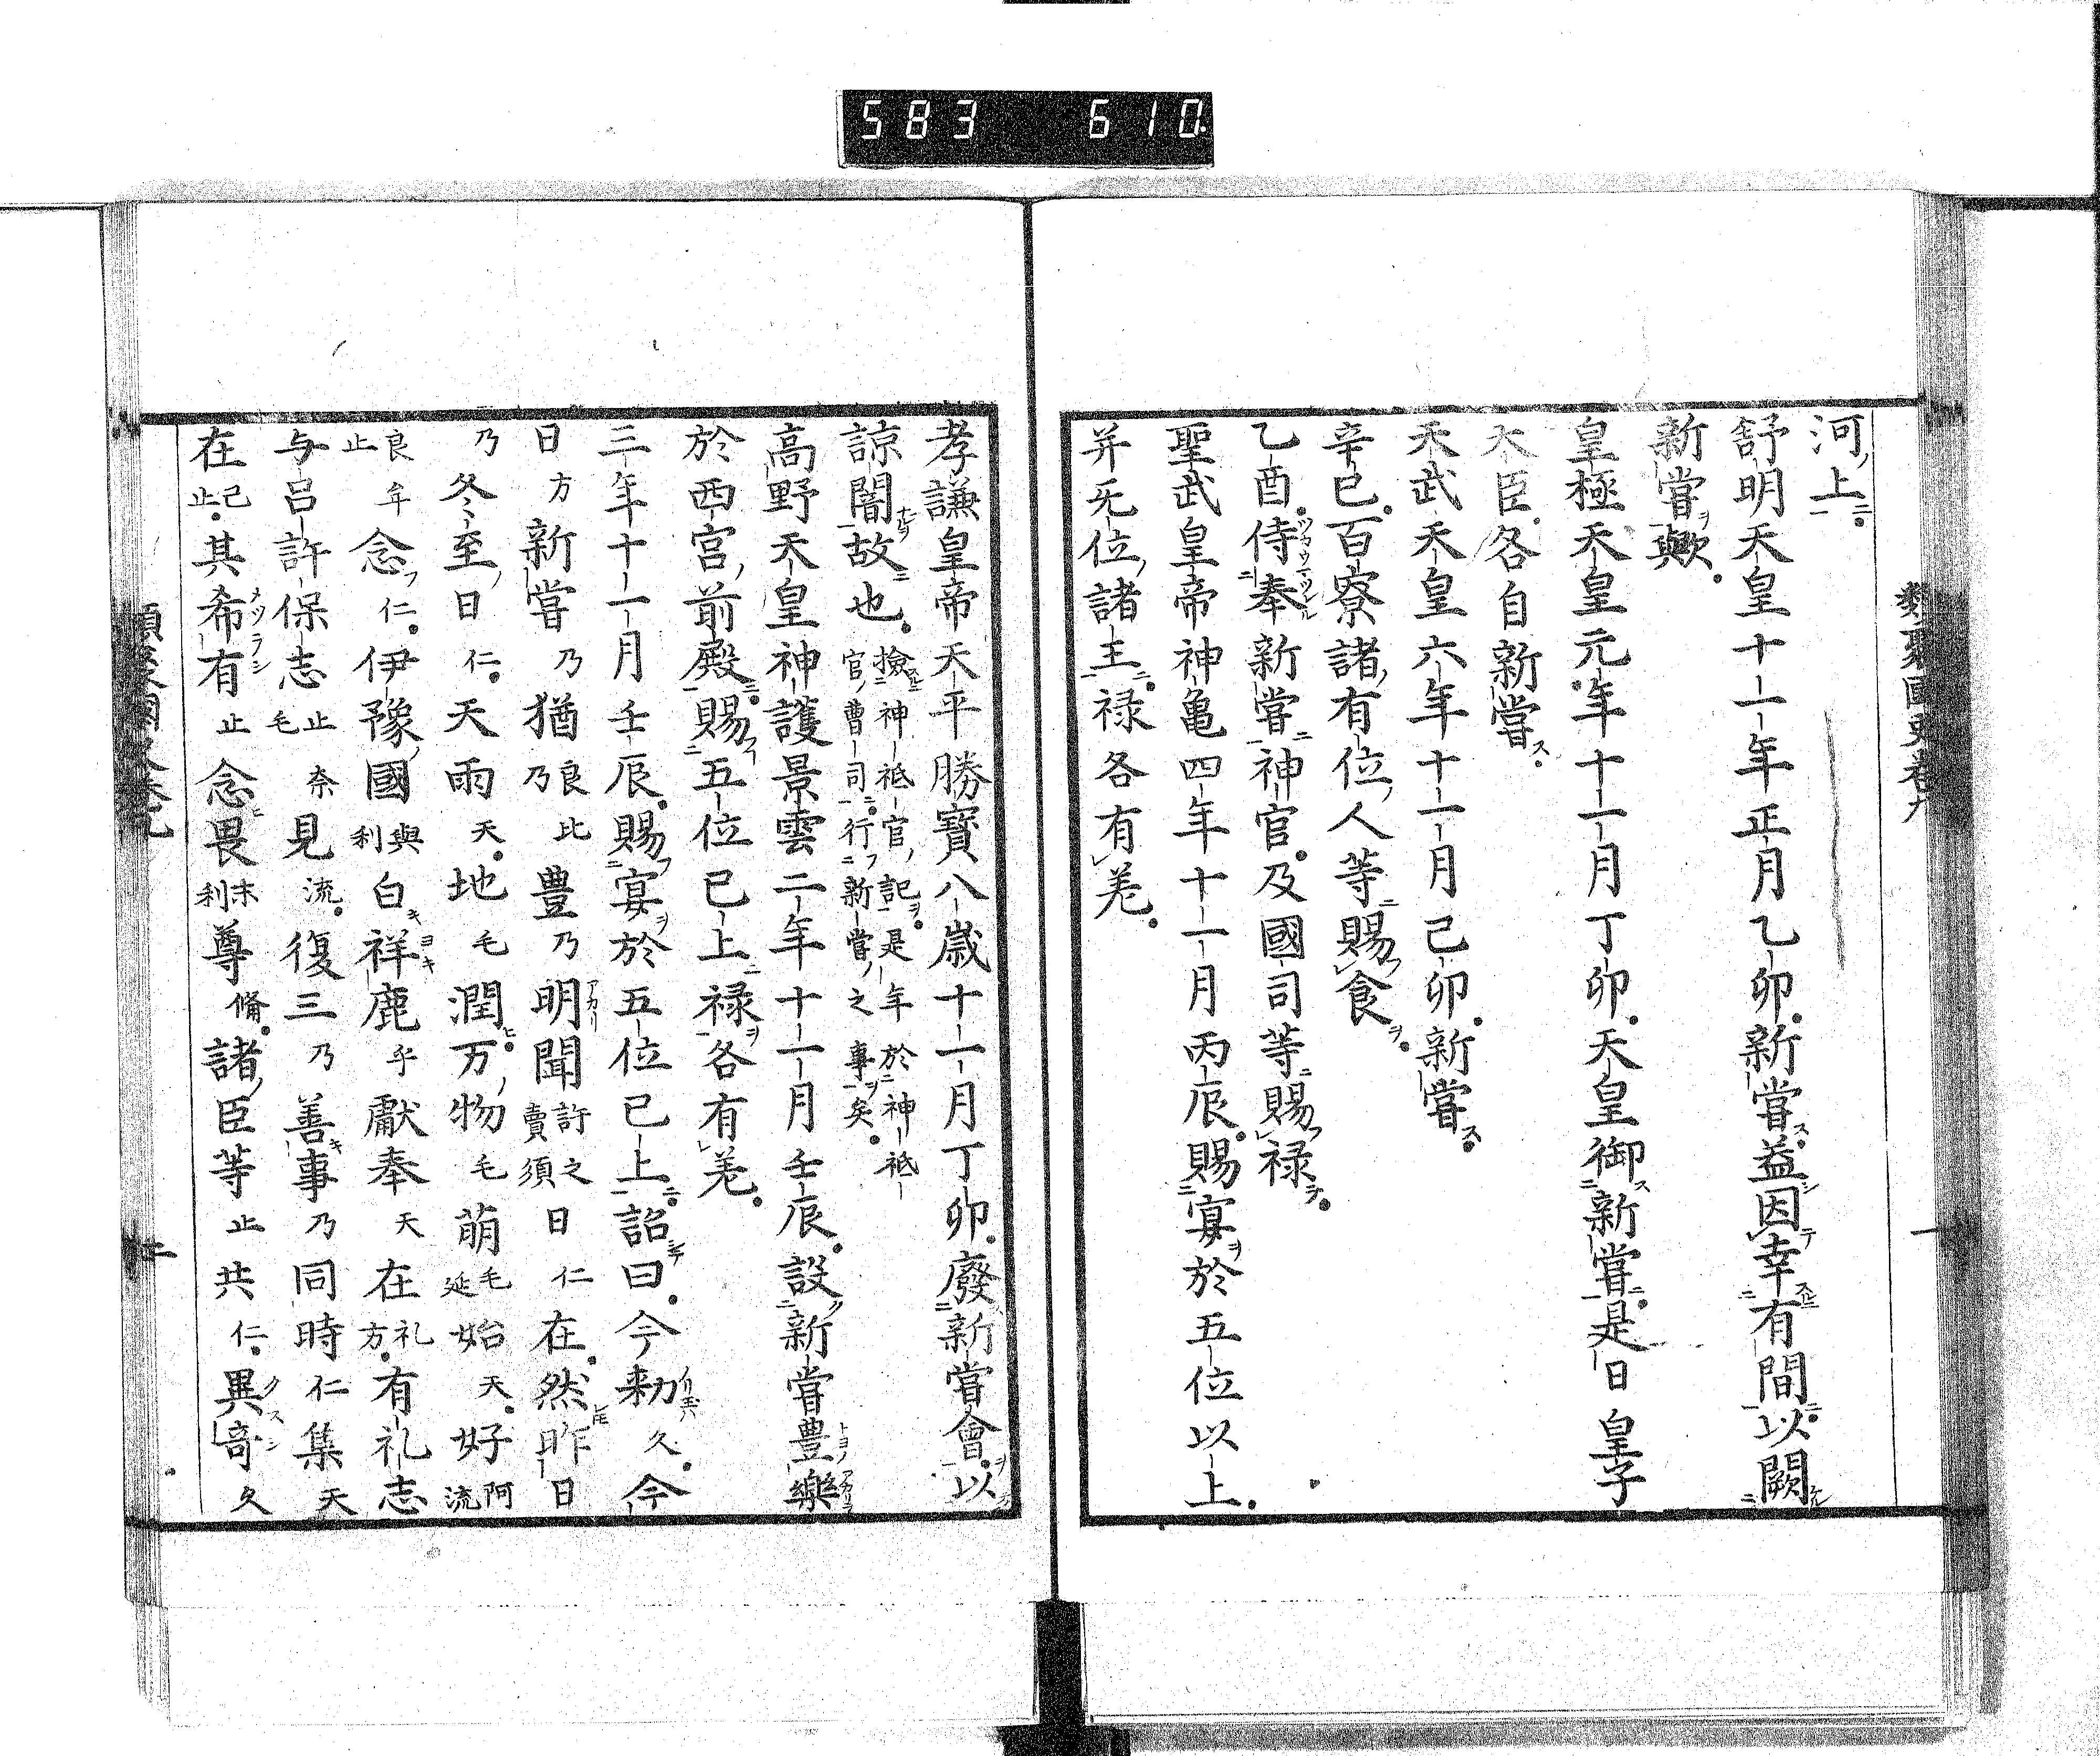 583 610
類聚國史卷九 一
河上
舒明天皇十一年正月乙卯新嘗益因幸有間以闕
新嘗歟
皇極天皇元年十一月丁卯天皇御新嘗是日皇子
大臣各自新嘗
天武天皇六年十一月己卯新嘗
辛巳百寮諸有位人等賜食
乙酉侍奉新嘗神官及國司等賜禄
聖武皇帝神亀四年十一月丙辰賜宴於五位以上
并无位諸王禄各有差
孝謙皇帝天平勝寶八歳十一月丁卯廢新嘗會以
諒闇故也撿神祗官記是年於神祗官曹司行新嘗之事矣
高野天皇神護景雲二年十一月壬辰設新嘗豊樂
於西宮前殿賜五位已上禄各有差
三年十一月壬辰賜宴於五位已上詔曰今勅久今
日方新嘗乃猶良比乃豊乃明聞許之賣須日仁在然昨日
乃冬至日仁天雨天地毛潤万物毛萌毛延始天好阿流
良牟止念仁伊豫國與利白祥鹿乎獻奉天在礼方有礼志
与呂許保志止奈毛見流復三乃善事乃同時仁集天
在己止其希有止念畏末利尊脩諸臣等止共仁異奇久
類聚國史卷九 二